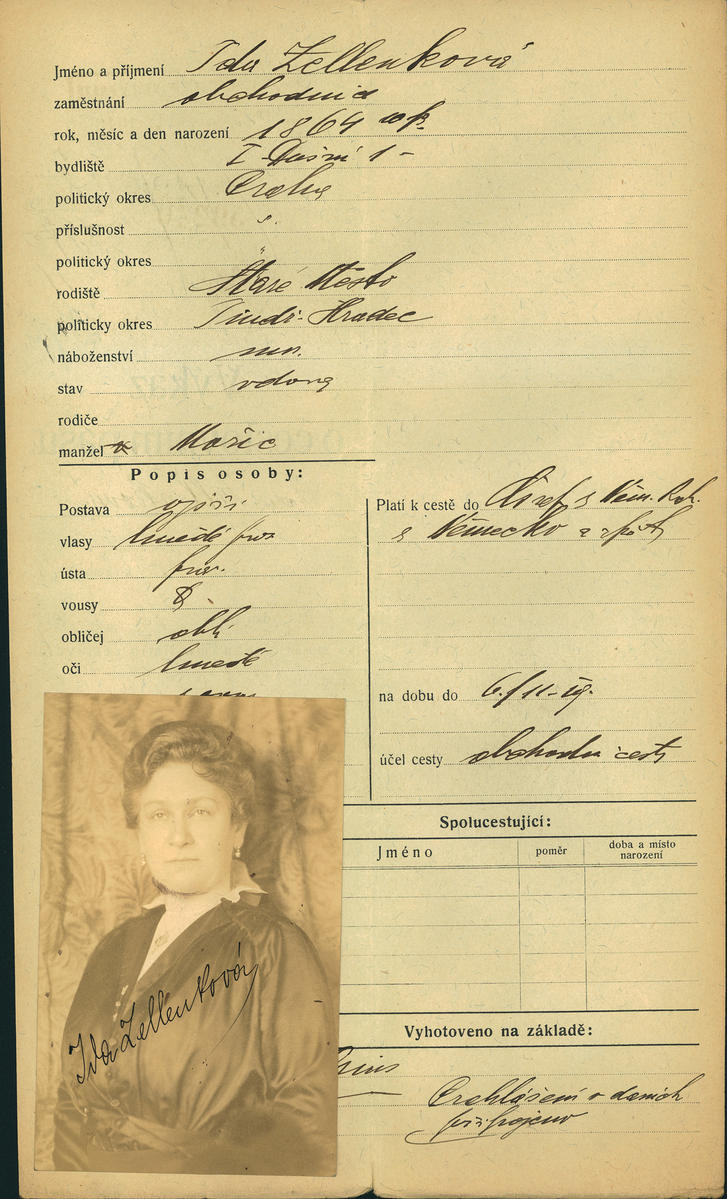 Jméno a příjmení Ida Zellenková
zaměstnání obchodnice
rok, měsíc a den narození 1864
bydliště I Dušní 1 -
politický okres Praha
příslušnost "
politický okres "
rodiště Staré Město
politicky okres Jindř. Hradec
náboženství
stav vdova
rodiče
manžel Mořic
Popis osoby:
Postava
vlasy hnědé
ústa
vousy
obličej obl.
oči hnědé
Platí k cestě do
Německo a zpět
na dobu do 6./11-19.
účel cesty obchodní cesty
Spolucestující:
Jméno
poměr
doba a místo
narození
Vyhotoveno na základě:
Prohlášení o daních
připojeno
Ida Zellenková